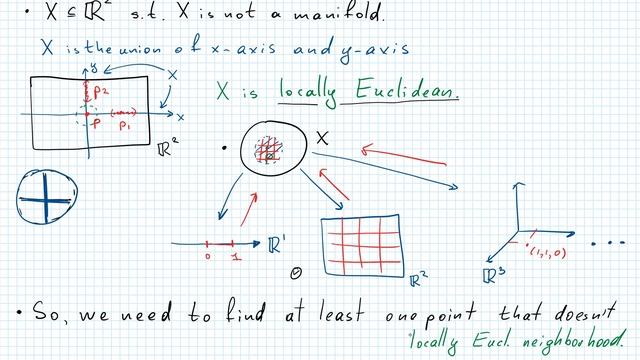 • X ⊆ ℝ² s.t. X is not a manifold.
X is the union of x-axis and y-axis
y
X
P2
X is locally Euclidean.
x
P
P1
ℝ²
X
ℝ¹
0 1
ℝ²
(1,1,0)
ℝ³
• So, we need to find at least one point that doesn't
locally Eucl. neighbourhood.